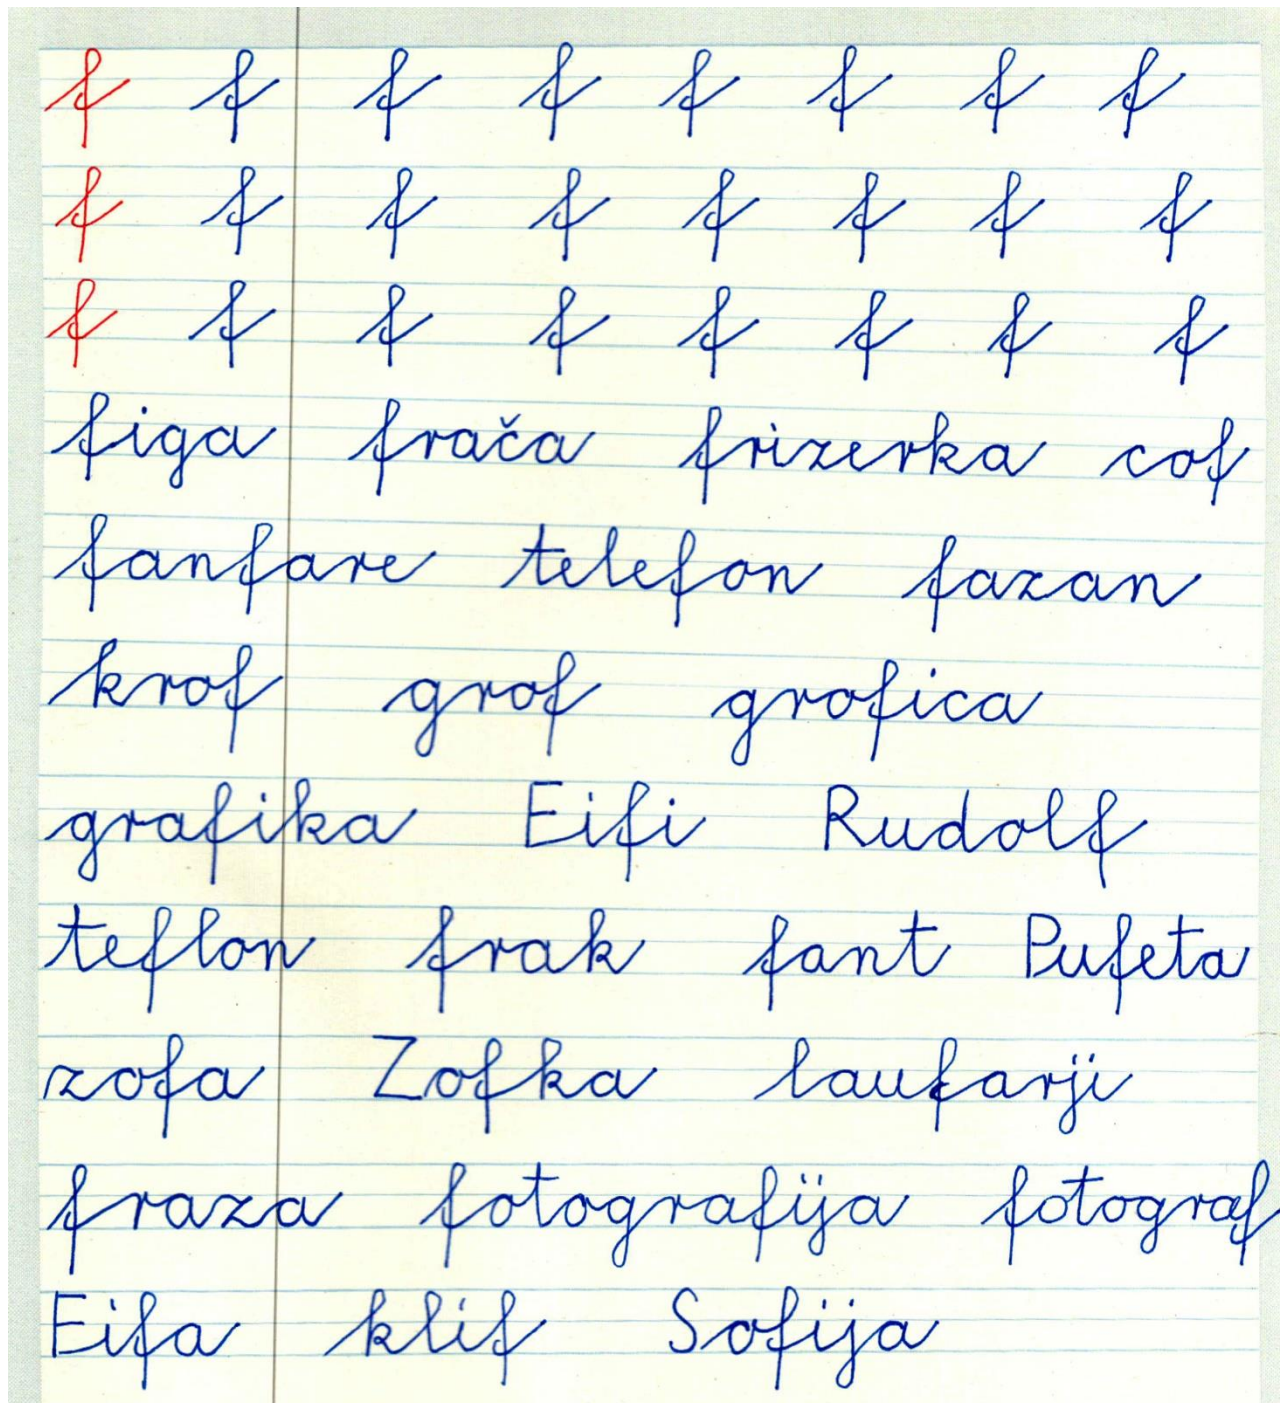 f f f f f f f f
f f f f f f f f
f f f f f f f f
figa frača frizerka cof
fanfare telefon fazan
krof grof grofica
grafika Eifi Rudolf
teflon frak fant Pufeta
zofa Zofka laufarji
fraza fotografija fotograf
Eifa klif Sofija